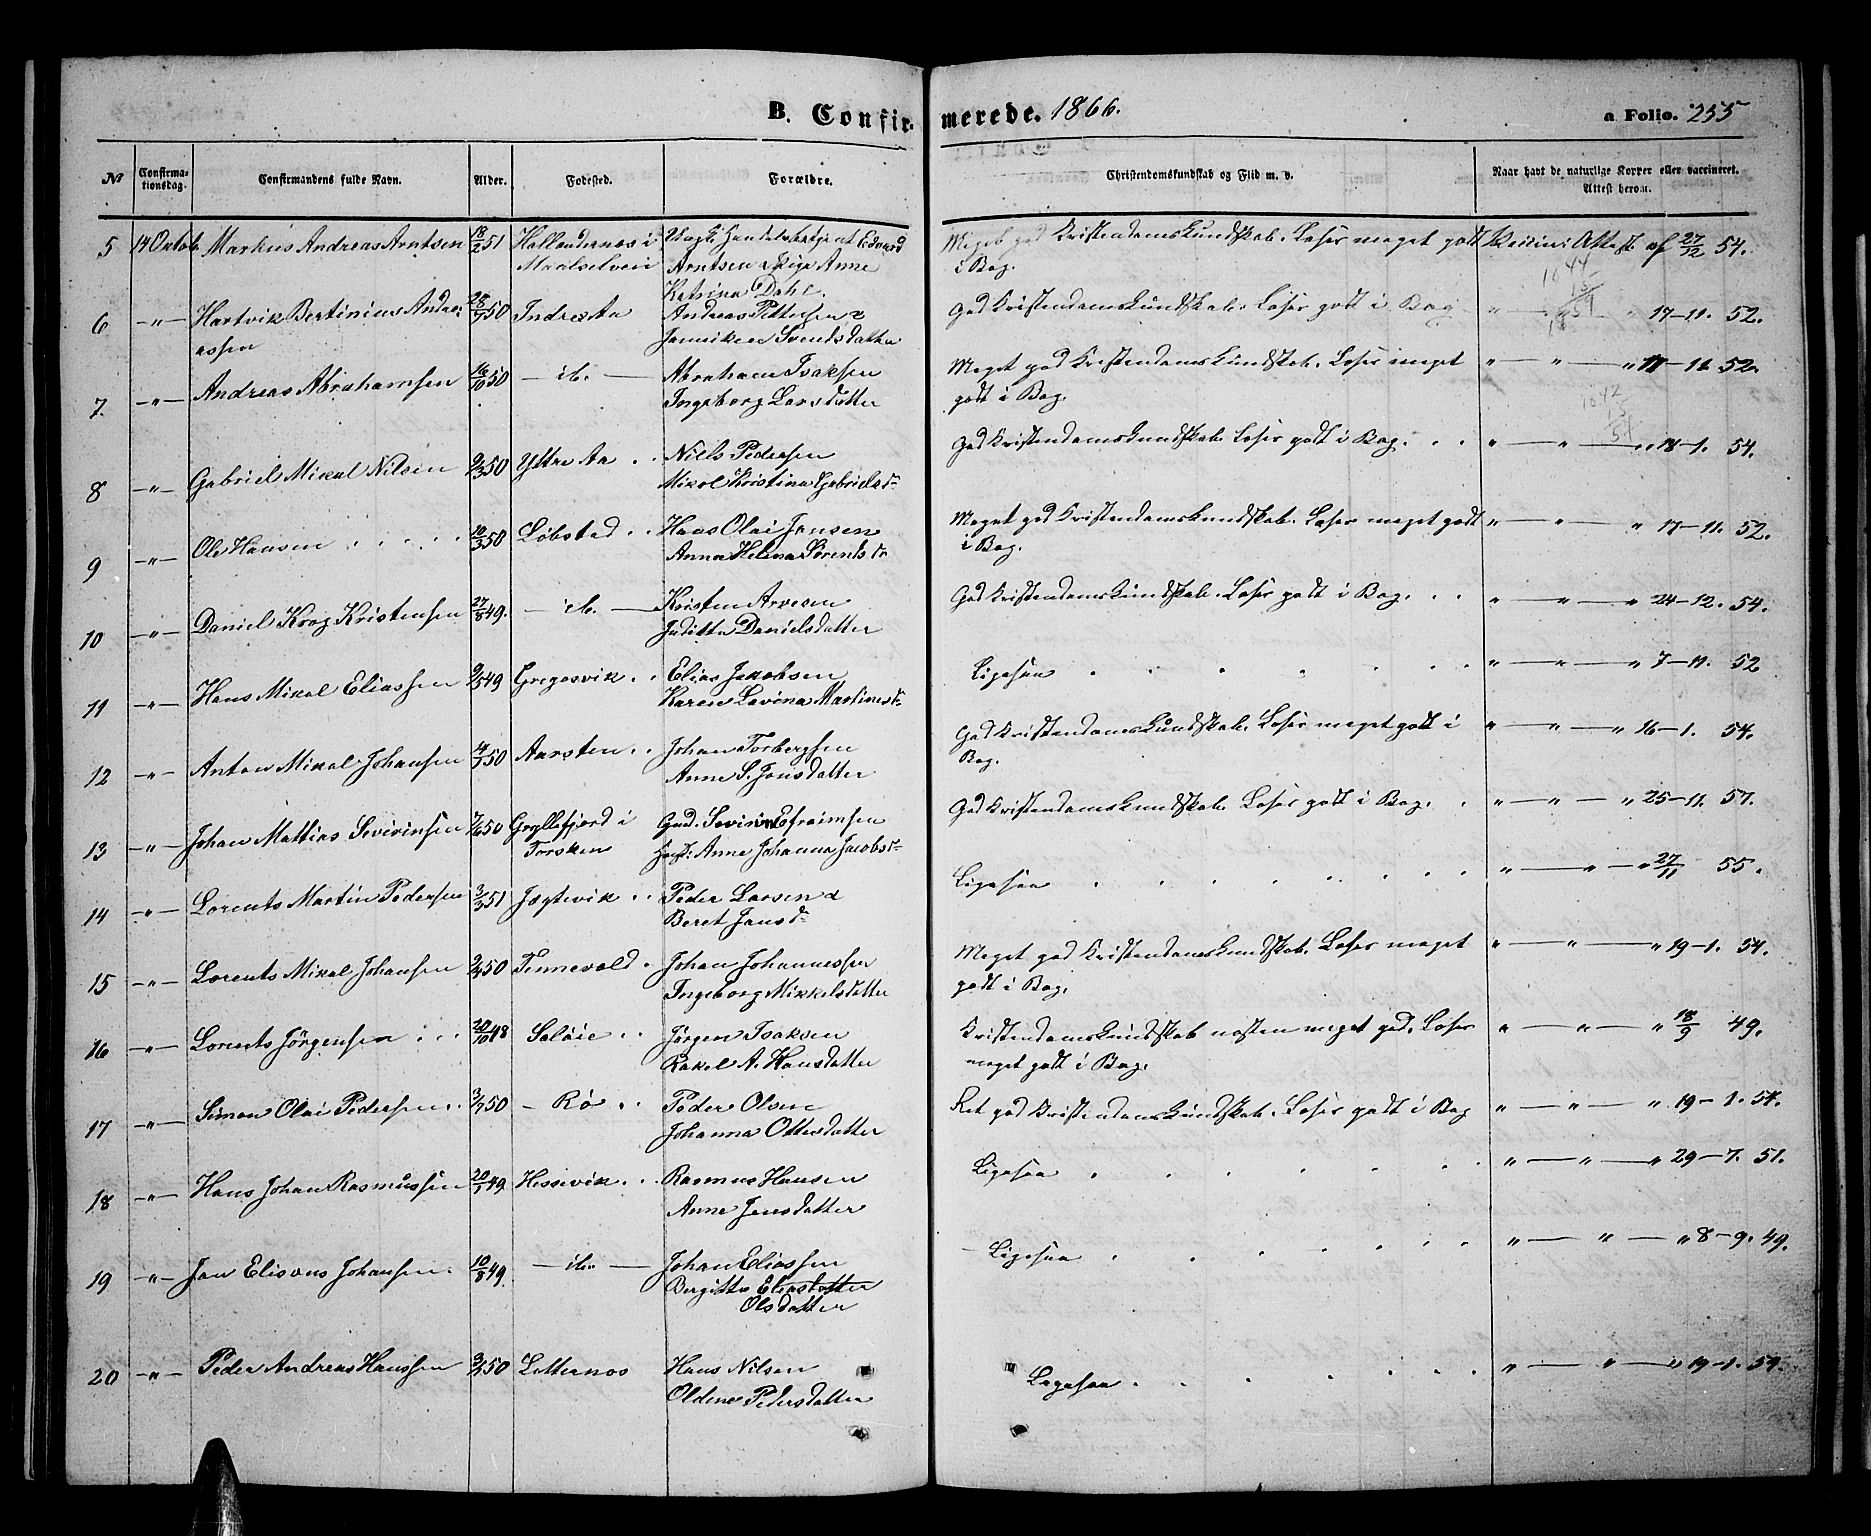 B. Confirmerede. 1866.
a Folio. 255
No Confirmationsdag. Confirmandens fulde Navn. Alder. Fødested. Forældre. Christendomskundskab og Flid m. v. Naar havt de naturlige Kopper eller vaccineret. Attest herom.
5 14 Octob. Markus Andreas Arntsen 18/2 51 Hollendernes i Edvard Meget god Kristendomskundskab. Læser meget godt Vaccine Attest af 27/12 54.
Maalselven Arntsen Pige Anne i Bog.
Katrina Dahl.
6 -"- Hartvik Bertinius Andre- 28/7 50 Indre Aa Andreas Pettersen & God Kristendomskundskab. Læser godt i Bog " — " 17-11. 52.
assen Jannikken Svendsdatter
7. -"- Andreas Abrahamsen 16/10 50 — ib. — Abraham Isaksen Meget god Kristendomskundskab. Læser meget " — " — " 52.
Ingeborg Larsdatter godt i Bog.
8 -"- Gabriel Mikal Nilsen 9/3 50 Yttre Aa . . Niels Pedersen God Kristendomskundskab. Læser godt i Bog. . . " — " — " 18-1. 54.
Mikol Kristina Gabrielsd-
9 -"- Ole Hansen . . . . . 10/3 50 Løbstad . . Hans Olai Jensen Meget god Kristendomskundskab. Læser meget godt " — " " 17-11. 52.
Anna Helena Sørentsd- i Bog.
10 -"- Daniel Krog Kristensen 27/8 49. — ib. — Kristen Arvesen God Kristendomskundskab. Læser godt i Bog. . . " — " — " 24-12. 54.
Juditta Danielsdatter
11 -"- Hans Mikal Eliassen 9/5 49 Gregosvik . . Elias Jakobsen Ligesaa . . . . . . " — " — " 7-11. 52
Karen Lavina Martinusd-
12 -"- Anton Mikal Johansen 50 Aarsten . . Johan Torbergsen God Kristendomskundskab. Læser meget godt i " — " — " 16-1. 54.
Anne S. Jonsdatter Bog.
13 -"- Johan Mattias Sevirinsen 7/6 50 Gryllefjord i Gmd. Sevirin Efraimsen God Kristendomskundskab. Læser godt i Bog. . " — " — " 25-11. 57.
Torsken Hust: Anne Johanna Jacobsd-
14 -"- Lorents Martin Pedersen 3/3 51 Jægtevik . . Peder Larsen & Ligesaa . . . . . . . " — " — " 27/11 55.
Beret Jansd-
15 -"- Lorents Mikal Johansen 50 Tennevold . Johan Johannessen Meget god Kristendomskundskab. Læser meget " — " — " 19-1. 54.
Ingeborg Mikkelsdatter godt i Bog.
16 -"- Lorents Jørgensen . . . 20/10 48 Saløie . . Jørgen Isaksen Kristendomskundskab næsten meget god. Læser " — " — " 18/9 49.
Rakel A. Hansdatter meget godt i Bog.
17 -"- Simon Olai Pedersen . . 3/7 50 - Rø . . Peder Olsen Ret god Kristendomskundskab. Læser godt i Bog " — " — " 19-1. 54.
Johanna Ottesdatter
18 -"- Hans Johan Rasmussen 20/1 49 Hessevik . . Rasmus Hansen Ligesaa . . . . . . " — " — " 29-7. 51.
Anne Jensdatter
19 -"- Jan Elisæus Johansen . 10/8 49. — ib. — Johan Eliassen - Ligesaa . . . . . . " — " — " 8-9. 49.
Bergitta Eliasdatter
Olsdatter
20 -"- Peder Andreas Hanssen 50 Letternes Hans Nilsen Ligesaa . . . . . . " — " — " 19-1. 54.
Oldine Pedersdatter